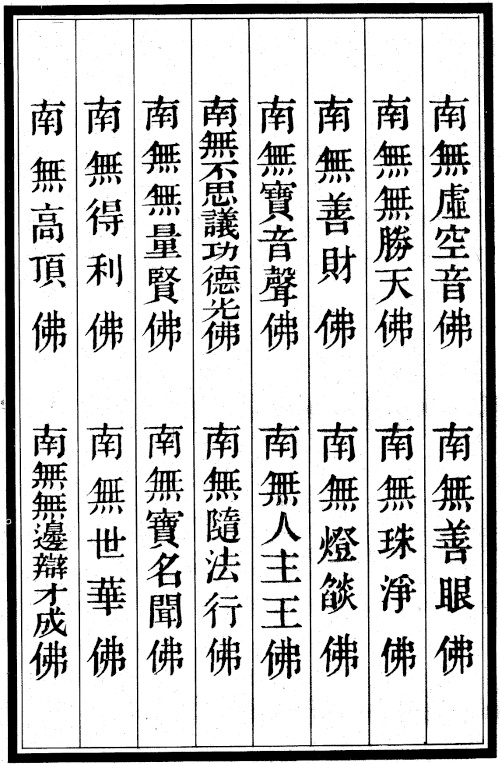 南無虛空音佛
南無善眼佛
南無無勝天佛
南無珠淨佛
南無善財佛
南無燈燄佛
南無寶音聲佛
南無人主王佛
南無不思議功德光佛
南無隨法行佛
南無無量賢佛
南無寶名聞佛
南無得利佛
南無世華佛
南無高頂佛
南無無邊辯才成佛